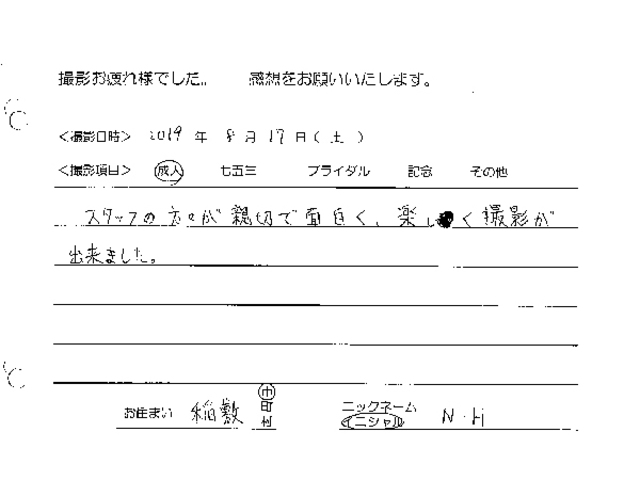 撮影お疲れ様でした。 感想をお願いいたします。
<撮影日時> 2019 年 8 月 17 日 (土)
<撮影項目> 成人 七五三 ブライダル 記念 その他
スタッフの方々が親切で面白く、楽しく撮影が
出来ました。
お住まい 稲敷 市 町 村 ニックネーム イニシャル N・H